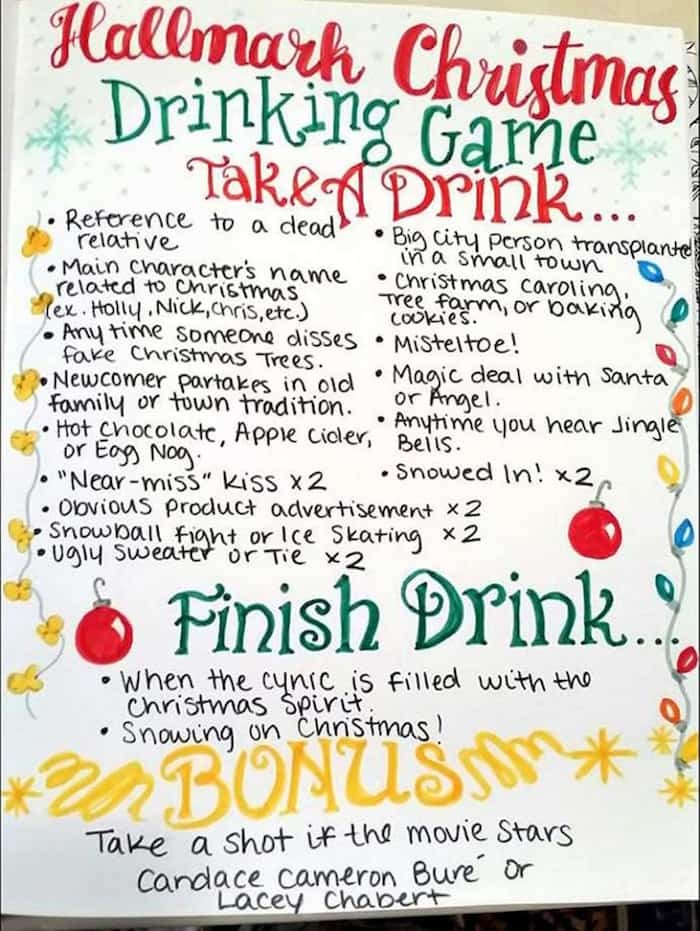 Hallmark Christmas
Drinking Game
Take A Drink...
• Reference to a dead
relative
• Main character's name
related to Christmas
(ex. Holly, Nick, Chris, etc.)
• Any time someone disses
fake Christmas Trees.
• Newcomer partakes in old
family or town tradition.
• Hot Chocolate, Apple Cider,
or Egg Nog.
• "Near-miss" kiss x2
• Obvious product advertisement x2
• Snowball fight or Ice Skating x2
• Ugly Sweater or Tie x2
• Big city person transplante
in a small town
• Christmas caroling,
tree farm, or baking
cookies.
• Misteltoe!
• Magic deal with Santa
or Angel.
• Anytime you hear Jingle
Bells.
• Snowed In! x2
Finish Drink...
• When the cynic is filled with the
Christmas Spirit.
• Snowing on Christmas!
BONUS
Take a shot if the movie stars
Candace Cameron Buré or
Lacey Chabert